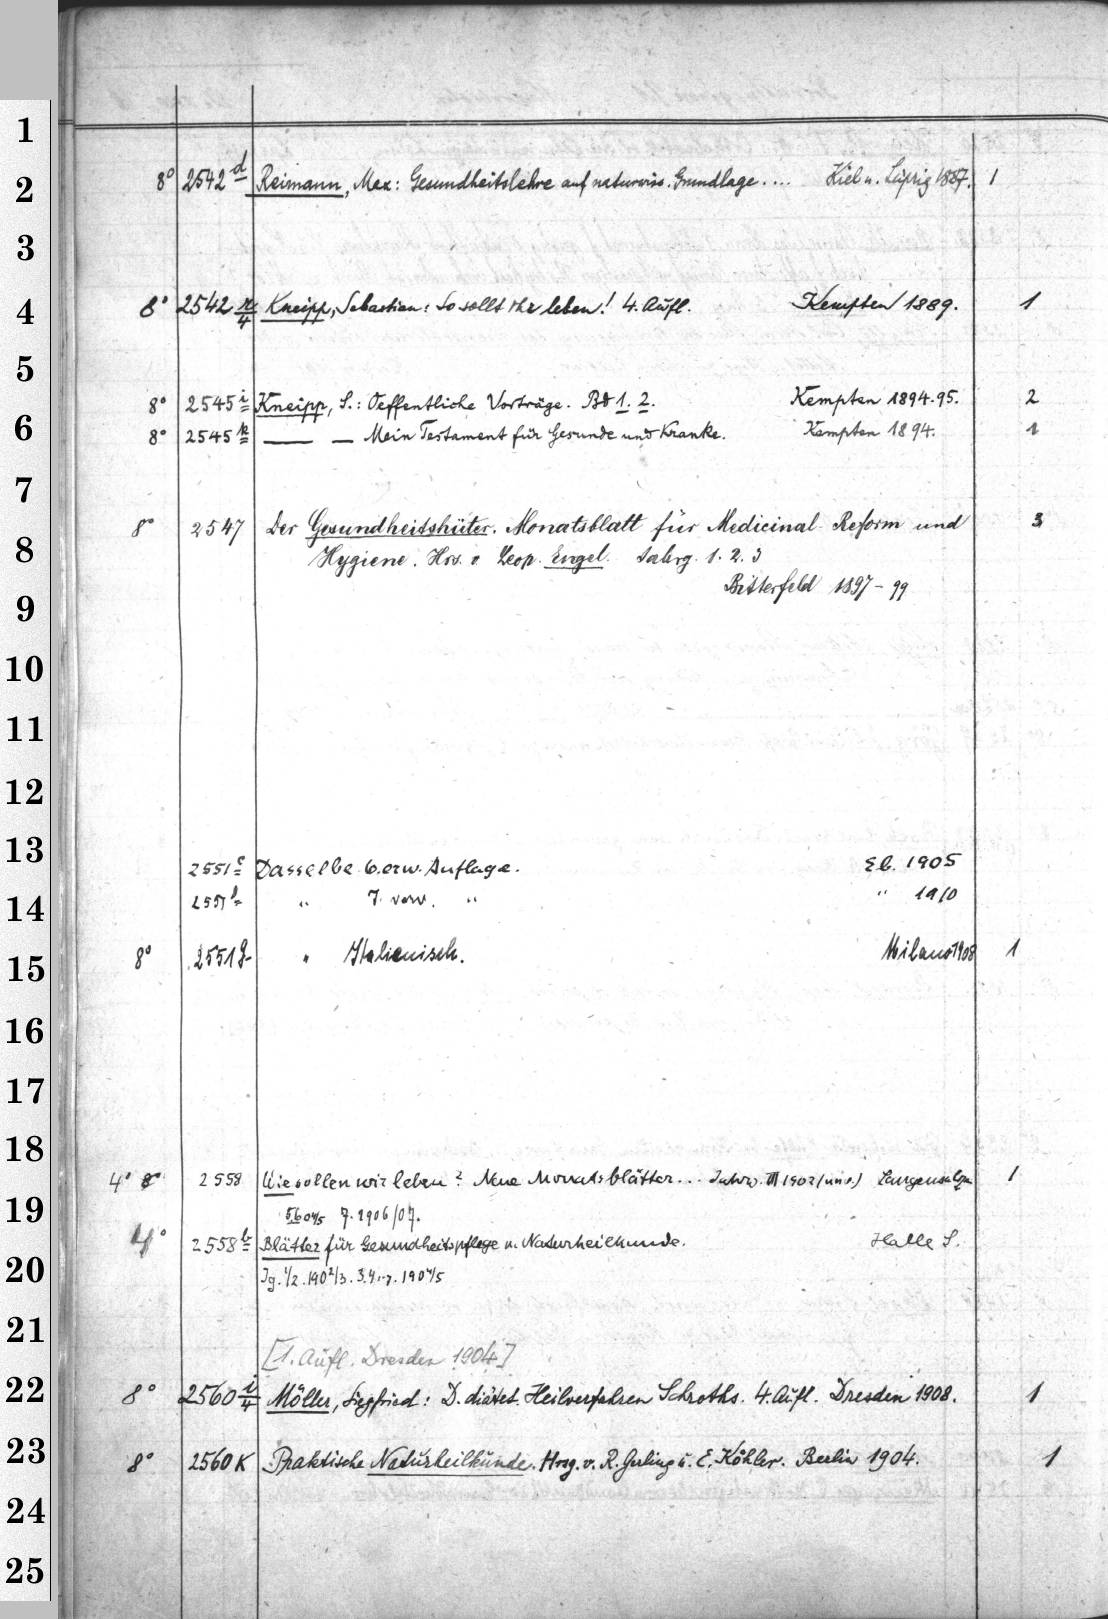 1
2
3
4
5
6
7
8
9
10
11
12
13
14
15
16
17
18
19
20
21
22
23
24
25
8° 2542 d Reimann, Max: Gesundheitslehre auf naturwiss. Grundlage.... Kiel u. Leipzig 1887. 1
8° 2542 n/4 Kneipp, Sebastian: So sollt ihr leben! 4. Aufl. Kempten 1889. 1
8° 2545 i Kneipp, S.: Oeffentliche Vorträge. Bd 1. 2. Kempten 1894.95. 2
8° 2545 k — — Mein Testament für Gesunde und Kranke. Kempten 1894. 1
8° 2547 Der Gesundheitshüter. Monatsblatt für Medicinal-Reform und 3
Hygiene. Hrs. v. Leop. Engel. Jahrg. 1. 2. 3
Bitterfeld 1897-99
2551 e Dasselbe 6. erw. Auflage. Eb. 1905
2551 f " 7. verw. " " 1910
8° 2551 g " Italienisch. Milano 1908 1
4° 8° 2558 Wie sollen wir leben? Neue Monatsblätter... III 1902 (unv.) Langensalza 1
7. 1906/07.
4° 2558 b Blätter für Gesundheitspflege u. Naturheilkunde. Halle S.
Jg. 1/2. 1902/3. 1904/5
[1. Aufl. Dresden 1904]
8° 2560 i/4 Möller, Siegfried: D. diätet. Heilverfahren Schroths. 4. Aufl. Dresden 1908. 1
8° 2560 K Praktische Naturheilkunde. Hrsg. v. R. Gerling u. E. Köhler. Berlin 1904. 1